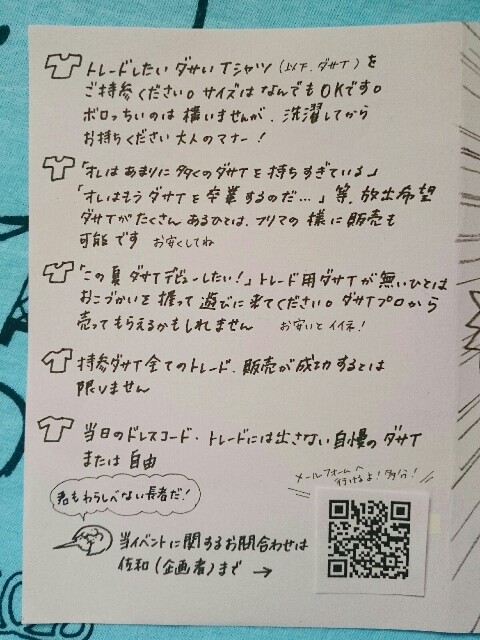 トレードしたいダサいTシャツ(以下、ダサT)を
ご持参ください。サイズはなんでもOKです。
ボロっちいのは構いませんが、洗濯してから
お持ちください大人のマナー!
「オレはあまりに多くのダサTを持ちすぎている」
「オレはもうダサTを卒業するのだ…」等、放出希望
ダサTがたくさんあるひとは、フリマの様に販売も
可能です お安くしてね
「この夏ダサTデビューしたい!」トレード用ダサTが無いひとは
おこづかいを握って遊びに来てください。ダサTプロから
売ってもらえるかもしれません お安いとイイネ!
持参ダサT全てのトレード、販売が成功するとは
限りません
当日のドレスコード・トレードには出さない自慢のダサT
または自由
メールフォームへ
行けるよ!多分!
君もわらしべない長者だ!
当イベントに関するお問合わせは
佐和(企画者)まで →